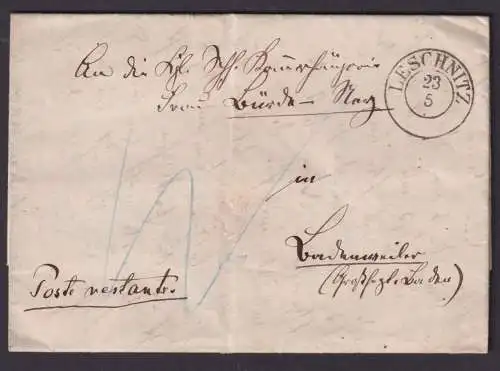 An die Kgl. Sächs. Kammersängerin
Frau Bürde-Ney
LESCHNITZ
23
5
in
Badenweiler
(Großhzgt. Baden)
Poste restante.